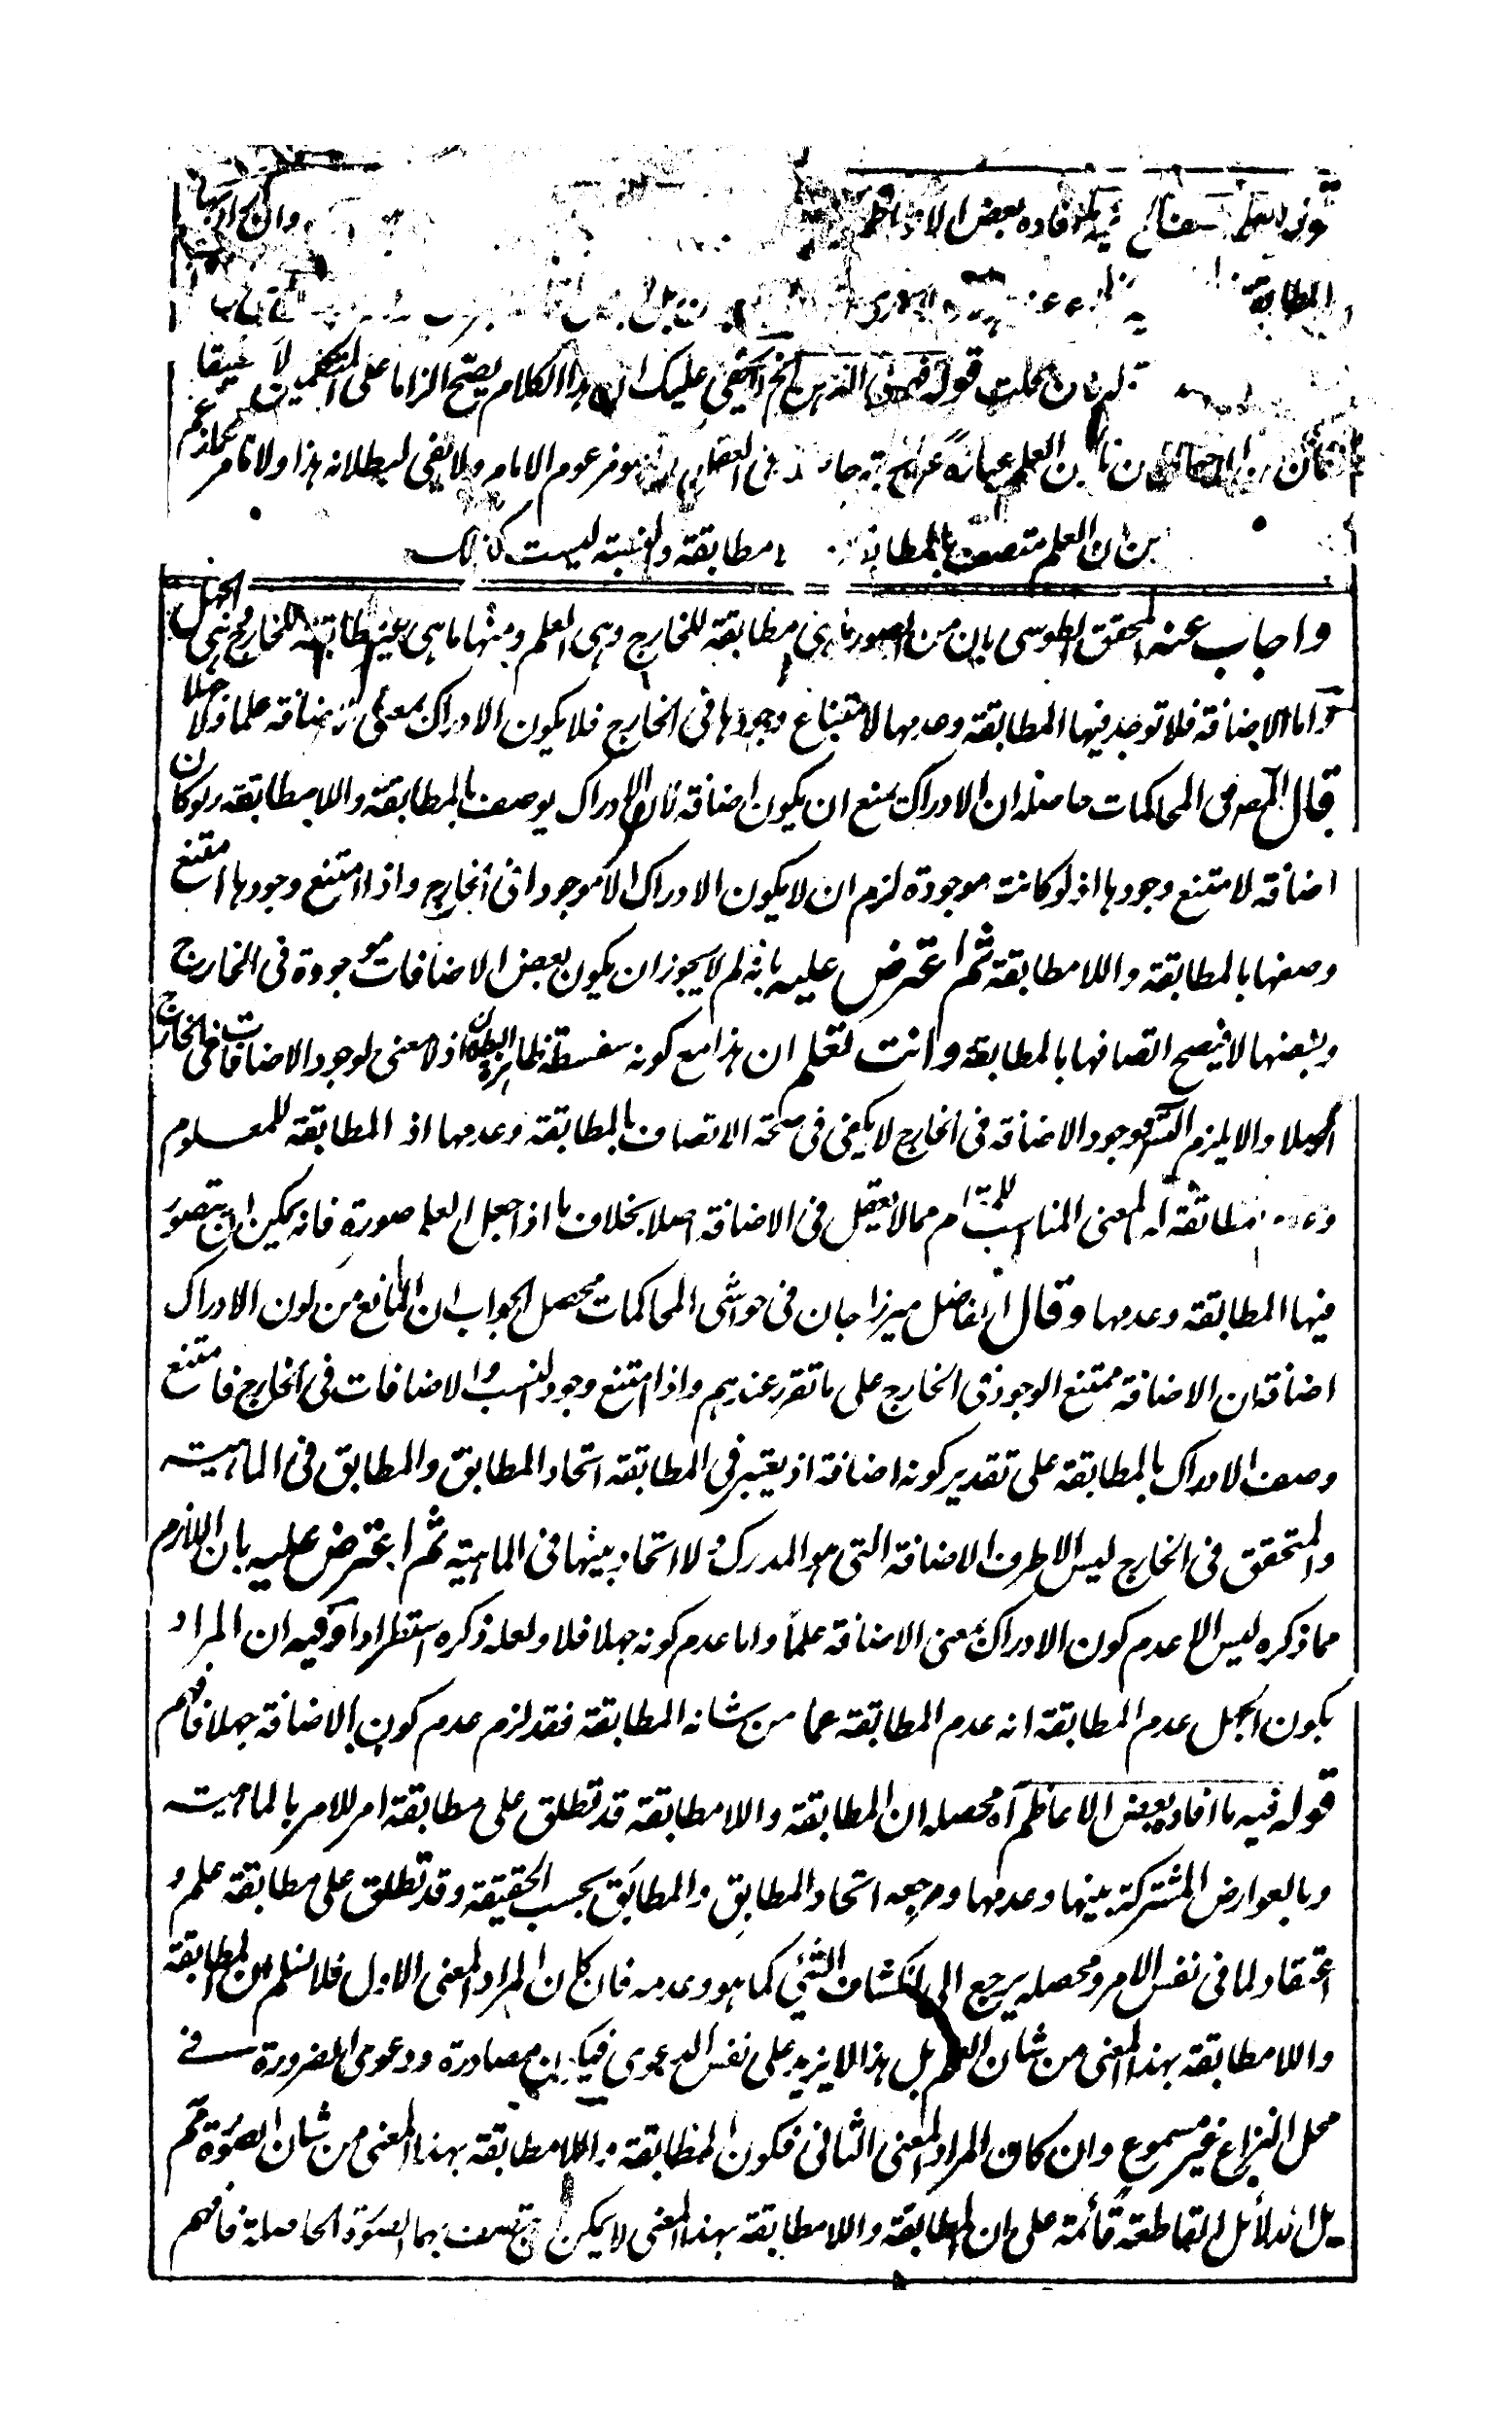 فيه ما افاده بعض الاعاظم
المطابقة
قوله فهو فى الذهن الخ لا يخفى عليك ان هذا الكلام يصح الزاما على المتكلمين لا تحقيقا
العلم عبارة عن فى العقل هو مزعوم الامام ولا يفى لبطلانه هذا ولا تامر
من ان العلم متصف بالمطابقة مطابقة والنسبة ليست كذلك
واجاب عنه المحقق الطوسى بان من الصور ما هى مطابقة للخارج وهى العلم ومنها ما هى غير مطابقة للخارج وهى الجهل
واما الاضافة فلا توجد فيها المطابقة وعدمها لامتناع وجودها فى الخارج فلا يكون الادراك بمعنى الاضافة علما ولا جهلا
قال المص فى المحاكمات حاصله ان الادراك يمنع ان يكون اضافة لان الادراك يوصف بالمطابقة واللا مطابقة ولو كان
اضافة لامتنع وجودها اذ لو كانت موجودة لزم ان لا يكون الادراك الا موجودا فى الخارج واذا امتنع وجودها امتنع
وصفها بالمطابقة واللا مطابقة ثم اعترض عليه بانه لم لا يجوز ان يكون بعض الاضافات موجودة فى الخارج
وبعضها لا فيصح اتصافها بالمطابقة وانت تعلم ان هذا مع كونه سفسطة ظاهرة البطلان اذ لا معنى لوجود الاضافات فى الخارج
اصلا والا يلزم التس فوجود الاضافة فى الخارج لا يكفى فى صحة الاتصاف بالمطابقة وعدمها اذ المطابقة للمعلوم
مطابقته له المعنى المناسب للمقام مما لا يعقل فى الاضافة اصلا بخلاف ما اذا جعل العلم صورة فانه يمكن ان يتصور
فيها المطابقة وعدمها وقال الفاضل ميرزا جان فى حواشى المحاكمات محصل الجواب ان المانع من كون الادراك
اضافة ان الاضافة ممتنع الوجود فى الخارج على ما تقرر عندهم واذا امتنع وجود النسب والاضافات فى الخارج فامتنع
وصف الادراك بالمطابقة على تقدير كونه اضافة اذ يعتبر فى المطابقة اتحاد المطابق والمطابق فى الماهية
والمتحقق فى الخارج ليس الا طرف الاضافة التى هو المدرك ولا اتحاد بينها فى الماهية ثم اعترض عليه بان اللازم
مما ذكره ليس الا عدم كون الادراك بمعنى الاضافة علما واما عدم كونه جهلا فلا ولعله ذكره استطرادا وفيه ان المراد
بكون الجهل عدم المطابقة انه عدم المطابقة عما من شانه المطابقة فقد لزم عدم كون الاضافة جهلا فافهم
قوله فيه ما افاد بعض الاعاظم آه محصله ان المطابقة واللا مطابقة قد تطلق على مطابقة امر للامر بالماهية
وبالعوارض المشتركة بينها وعدمها ومرجعه اتحاد المطابق والمطابق بحسب الحقيقة وقد تطلق على مطابقة علم و
اعتقاد لما فى نفس الامر ومحصله يرجع الى انكشاف الشئ كما هو وعدمه فان كان المراد المعنى الاول فلا نسلم ان المطابقة
واللا مطابقة بهذا المعنى من شان العلم بل هذا لا يزيد على نفس الدعوى فيكون مصادرة ودعوى الضرورة فى
محل النزاع غير مسموع وان كان المراد المعنى الثانى فكون المطابقة واللا مطابقة بهذا المعنى من شان الصورة مم
بل الدلائل القاطعة قائمة على ان المطابقة واللا مطابقة بهذا المعنى لا يمكن ان تتصف بهما الصورة الحاصلة فافهم